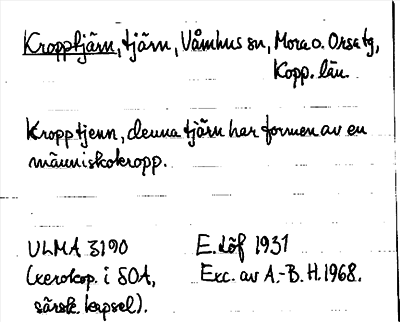 Kropptjärn, tjärn, Våmhus sn, Mora o. Orsa tg,
Kopp. län
Kropptjenn, denna tjärn har formen av en
människokropp.
ULMA 3190 E. Löf 1931
(xerokop. i SOA, Exc. av A.-B. H. 1968.
särsk. kapsel).